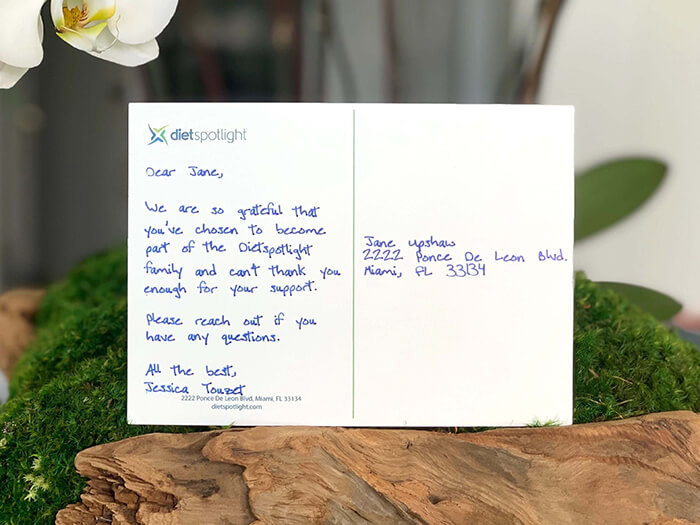 dietspotlight
Dear Jane,
We are so grateful that
you've chosen to become
part of the Dietspotlight
family and can't thank you
enough for your support.
Please reach out if you
have any questions.
All the best,
Jessica Touzet
2222 Ponce De Leon Blvd, Miami, FL 33134
dietspotlight.com
Jane Upshaw
2222 Ponce De Leon Blvd.
Miami, FL 33134